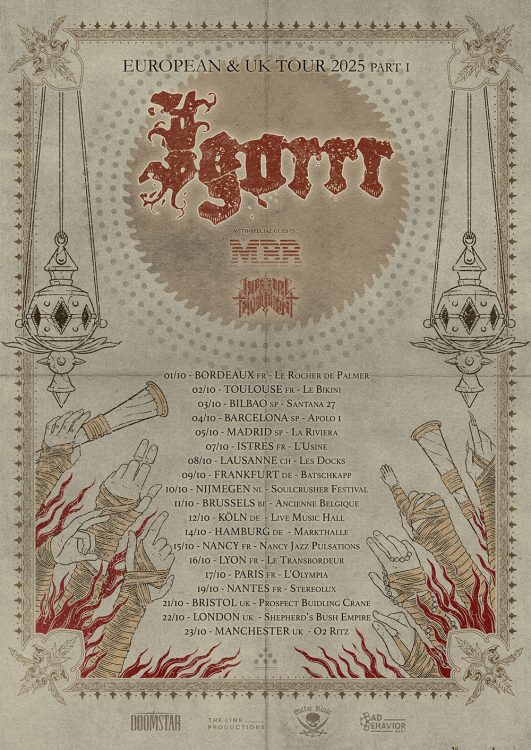 EUROPEAN & UK TOUR 2025 PART I
Igorrr
WITH SPECIAL GUESTS :
MBR
IMPERIAL TRIUMPHANT
01/10 - BORDEAUX FR - LE ROCHER DE PALMER
02/10 - TOULOUSE FR - LE BIKINI
03/10 - BILBAO SP - SANTANA 27
04/10 - BARCELONA SP - APOLO 1
05/10 - MADRID SP - LA RIVIERA
07/10 - ISTRES FR - L'USINE
08/10 - LAUSANNE CH - LES DOCKS
09/10 - FRANKFURT DE - BATSCHKAPP
10/10 - NIJMEGEN NL - SOULCRUSHER FESTIVAL
11/10 - BRUSSELS BE - ANCIENNE BELGIQUE
12/10 - KÖLN DE - LIVE MUSIC HALL
14/10 - HAMBURG DE - MARKTHALLE
15/10 - NANCY FR - NANCY JAZZ PULSATIONS
16/10 - LYON FR - LE TRANSBORDEUR
17/10 - PARIS FR - L'OLYMPIA
19/10 - NANTES FR - STEREOLUX
21/10 - BRISTOL UK - PROSPECT BUIDLING CRANE
22/10 - LONDON UK - SHEPHERD'S BUSH EMPIRE
23/10 - MANCHESTER UK - O2 RITZ
DOOMSTAR
THE LINK PRODUCTIONS
METAL BLADE
BAD BEHAVIOR